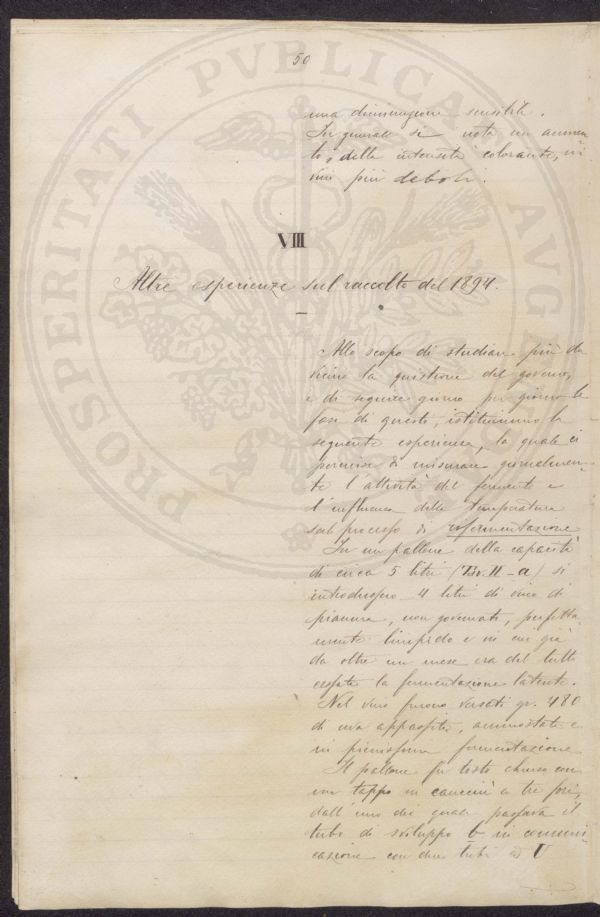 50
una diminuzione sensibile.
In generale si nota un aumen-
to, della intensità colorante, in
vini più deboli.
VIII
Altre esperienze sul raccolto del 1894.
Allo scopo di studiare più da
vicino la quistione del governo,
e di seguire giorno per giorno le
fasi di questo, istituimmo la
seguente esperienza, la quale ci
permise di misurare giornalmen-
te l'attività del fermento e
l'influenza della temperatura
sul processo di rifermentazione
In un pallone della capacità
di circa 5 litri (Tav. II - a) si
introdussero 4 litri di vino di
pianura, non governato, perfetta-
mente limpido e in cui già
da oltre un mese era del tutto
cessata la fermentazione latente.
Nel vino furono versati gr. 480
di uva appassita, ammostata e
in pienissima fermentazione
Il pallone fu tosto chiuso con
un tappo in caucciù a tre fori,
dall'uno dei quali passava il
tubo di sviluppo b in comuni-
cazione con due tubi ad U
PROSPERITATI PVBLICAE AVGENDAE